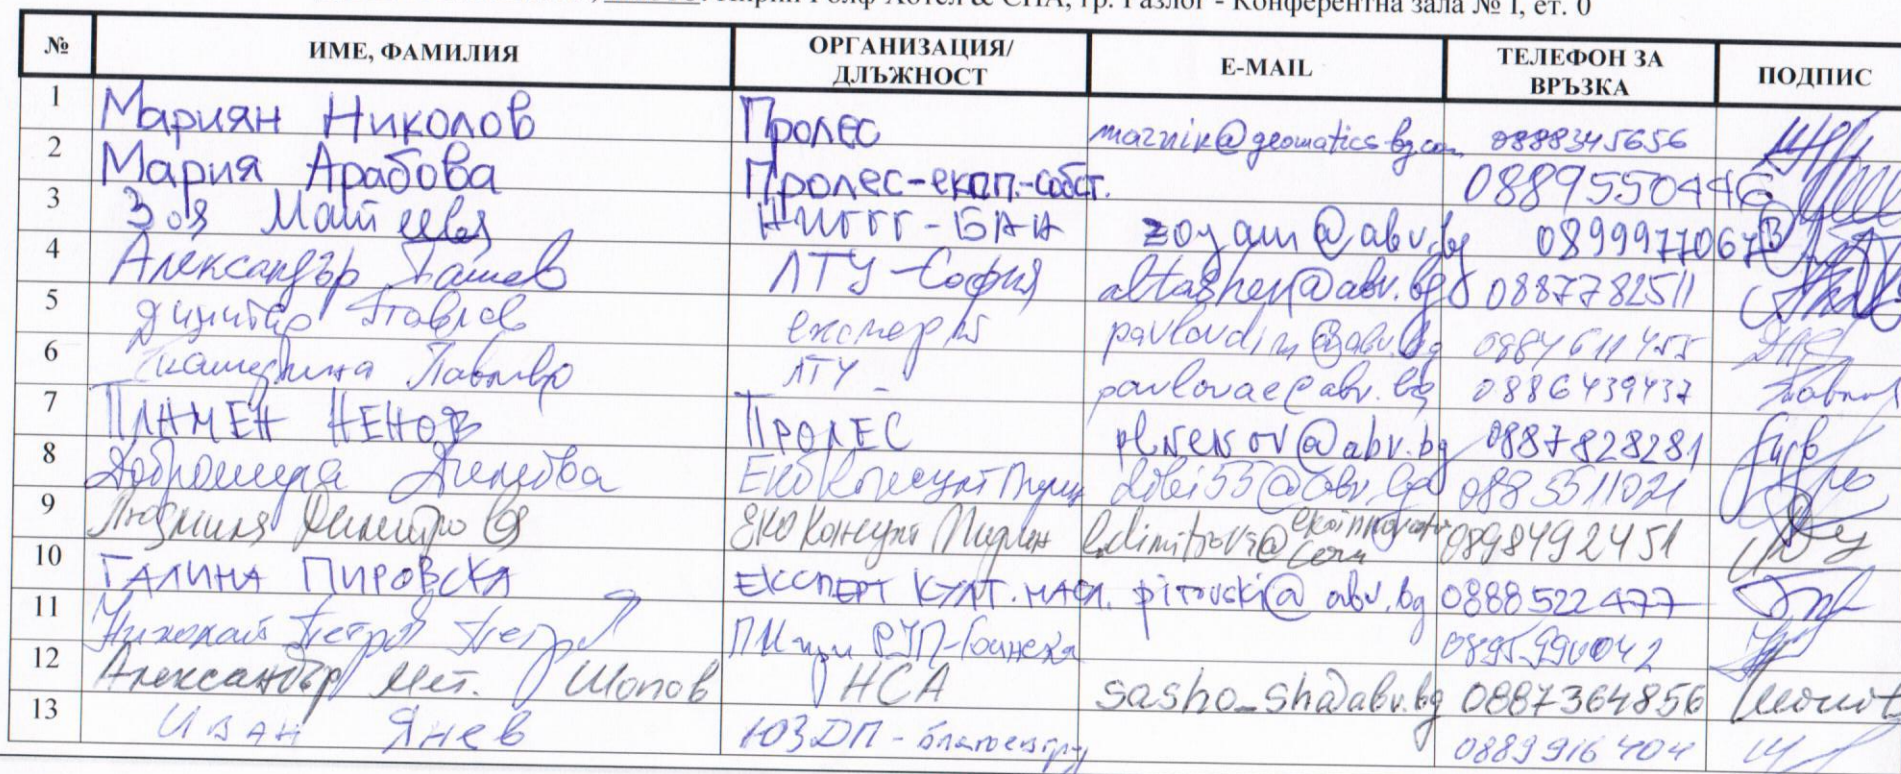 Пирин Голф Хотел & СПА, гр. Разлог - Конферентна зала № 1, ет. 0
№ ИМЕ, ФАМИЛИЯ ОРГАНИЗАЦИЯ/ ДЛЪЖНОСТ E-MAIL ТЕЛЕФОН ЗА ВРЪЗКА ПОДПИС
1 Мариян Николов Пролес marnik@geomatics-bg.com 0888345656
2 Мария Арабова Пролес-експ.-собст. 0889550446
3 Зоя Матеева НИГГГ-БАН zoyam@abv.bg 0899977067
4 Александър Ташев ЛТУ-София altashev@abv.bg 0887782511
5 Димитър Павлов експерт pavlovdim@abv.bg 0884611455
6 Екатерина Павлова ЛТУ pavlovae@abv.bg 0886439437
7 ПЛАМЕН НЕНОВ ПРОЛЕС plnenov@abv.bg 0887828281
8 Добромира Димова ЕкоКонсулт Пирин dobi55@abv.bg 0885511021
9 Людмила Димитрова ЕКО Консулт Пирин 0898492451
10 ГАЛИНА ПИРОВСКА ЕКСПЕРТ КУЛТ. НАСЛ. pirovski@abv.bg 0888522477
11 Николай Петров Петров РУП-Гоцделч 0895990042
12 Александър Мет. Шопов НСА sasho_sh@abv.bg 0887364856
13 Иван Янев ЮЗДП - Благоевград 0889916404